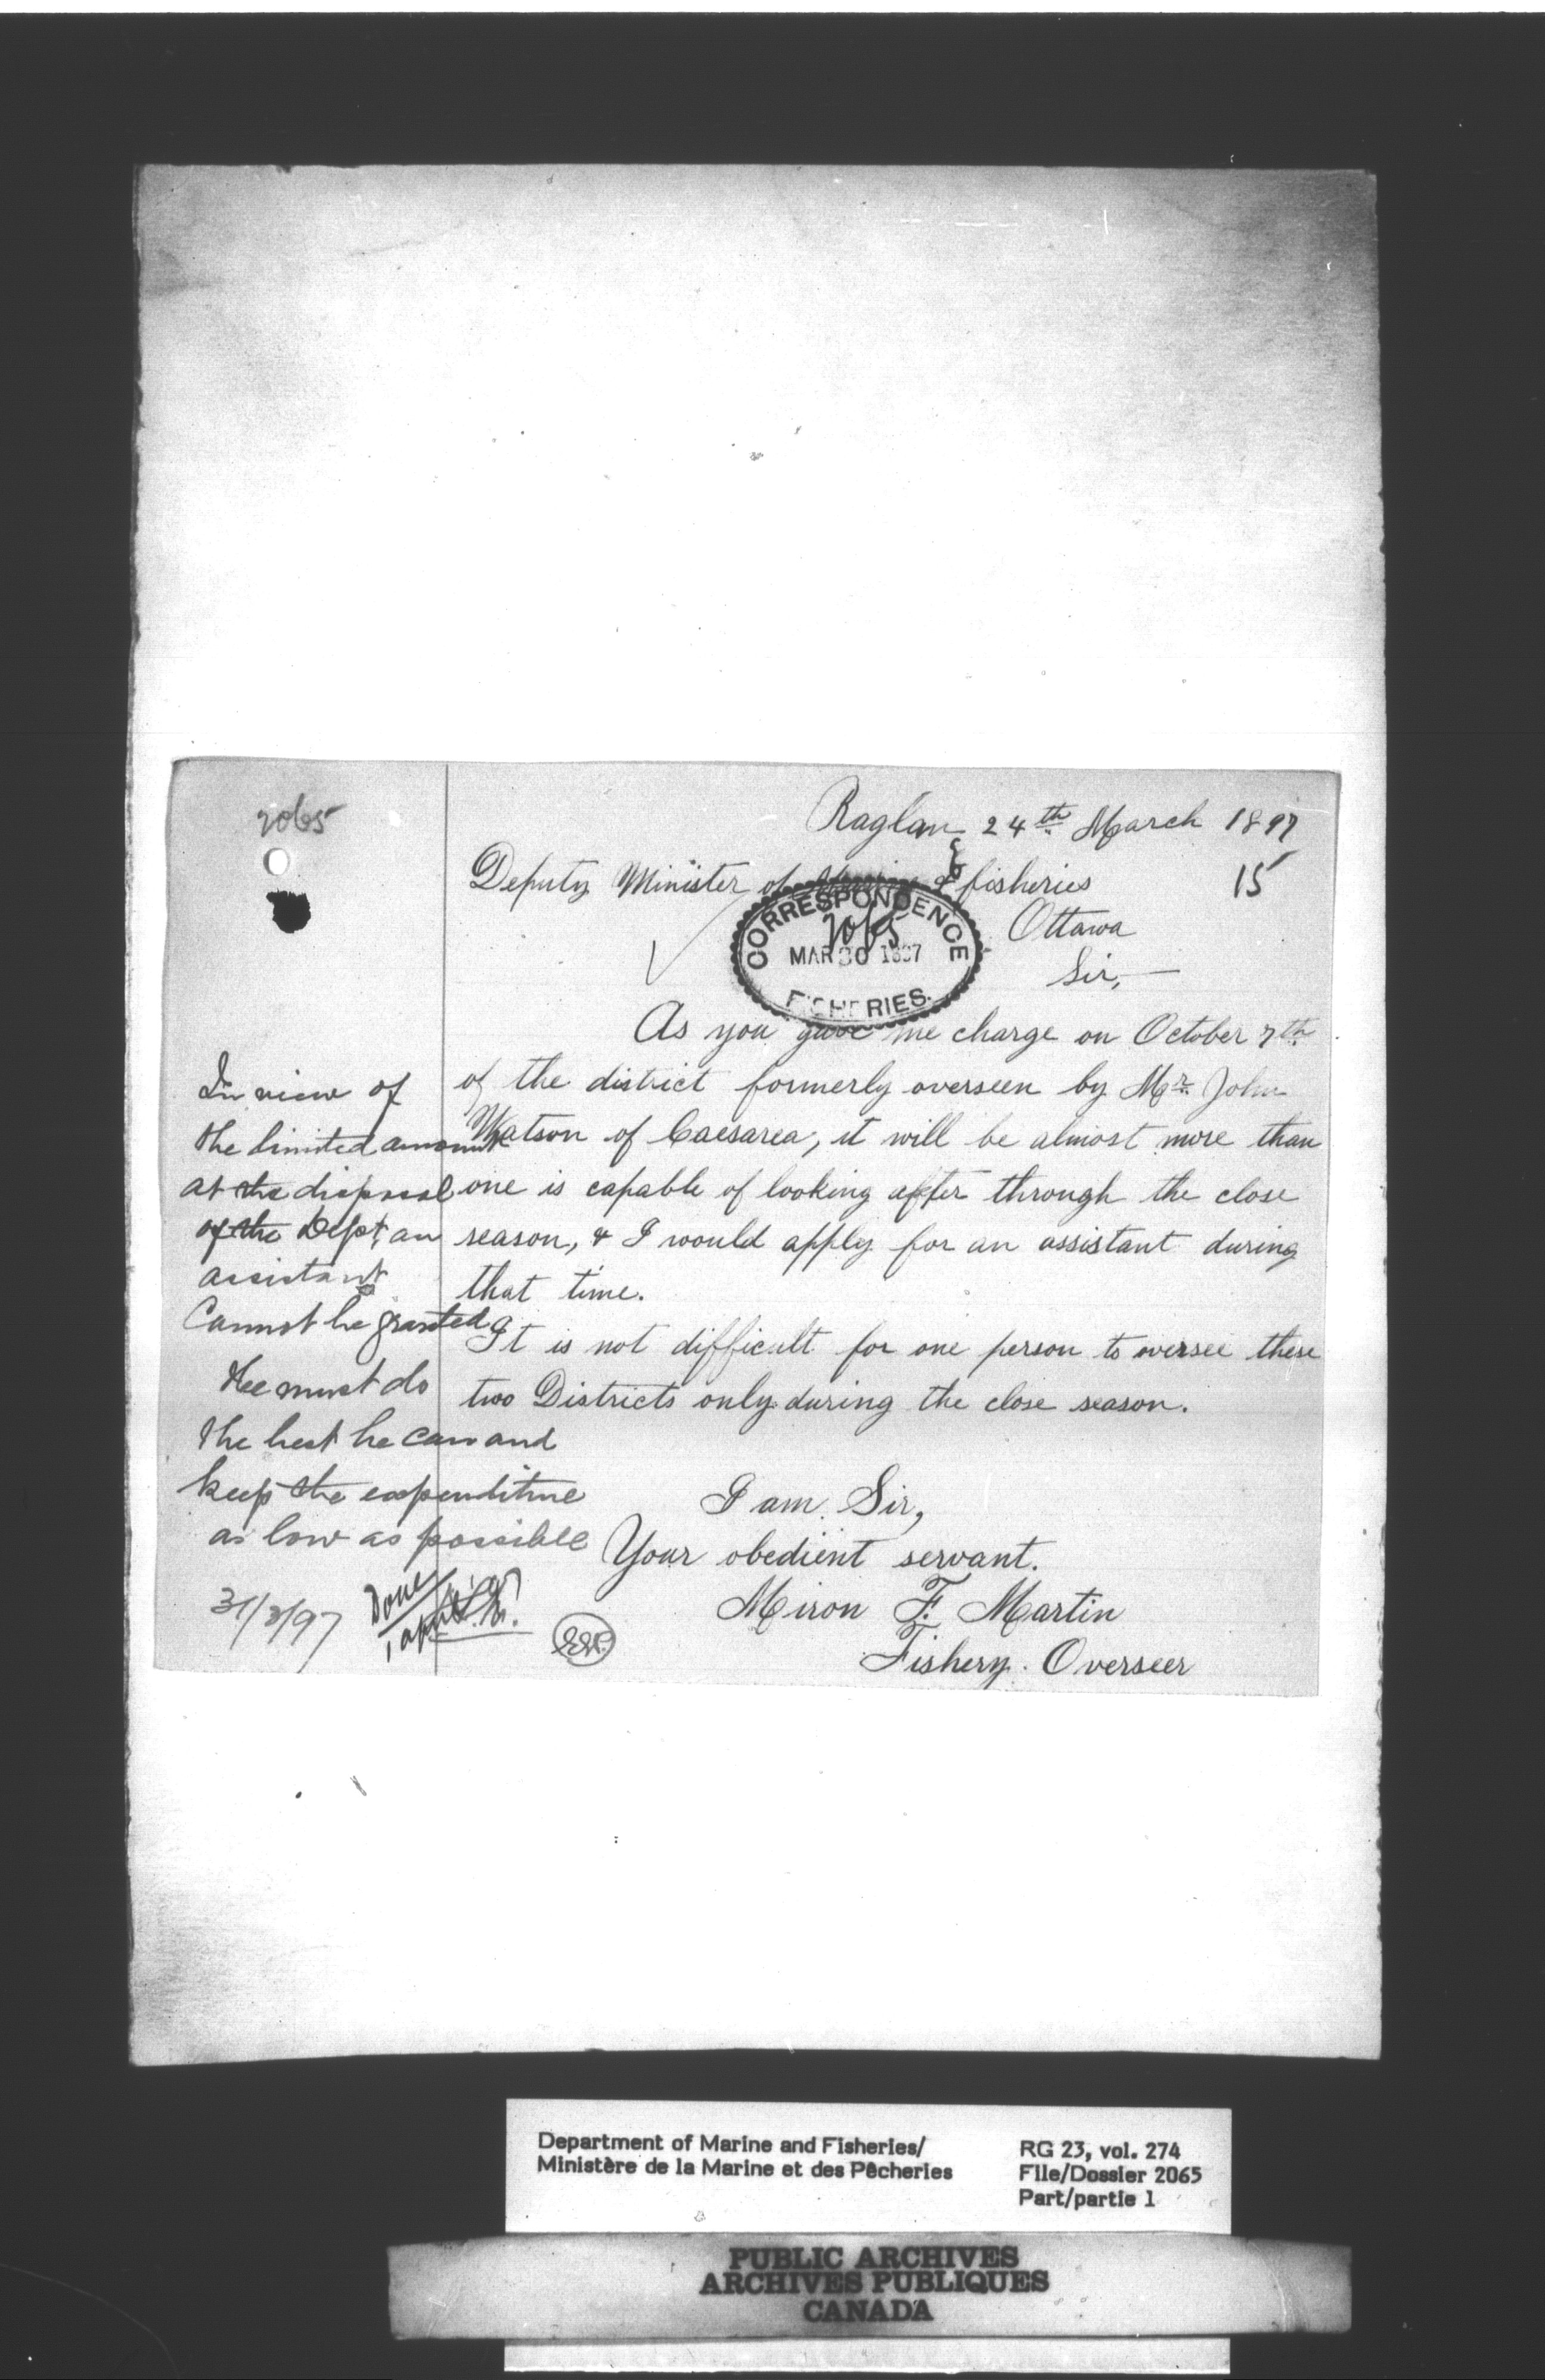 2065
Raglan 24th March 1897
15
Deputy Minister of Marine & fisheries
Ottawa
CORRESPONDENCE
2065
MAR 30 1897
FISHERIES.
Sir,—
As you gave me charge on October 7th
of the district formerly overseen by Mr. John
Watson of Caesarea, it will be almost more than
one is capable of looking after through the close
season, & I would apply for an assistant during
that time.
It is not difficult for one person to oversee these
two Districts only during the close season.
I am Sir,
Your obedient servant.
Miron F. Martin
Fishery Overseer
In view of
the limited amount
at the disposal
of the Dept, an
assistant
Cannot be granted
Hee must do
the best he can and
keep the expenditure
as low as possible
31/3/97
Done
1 april '97
Department of Marine and Fisheries/
Ministère de la Marine et des Pêcheries
RG 23, vol. 274
File/Dossier 2065
Part/partie 1
PUBLIC ARCHIVES
ARCHIVES PUBLIQUES
CANADA